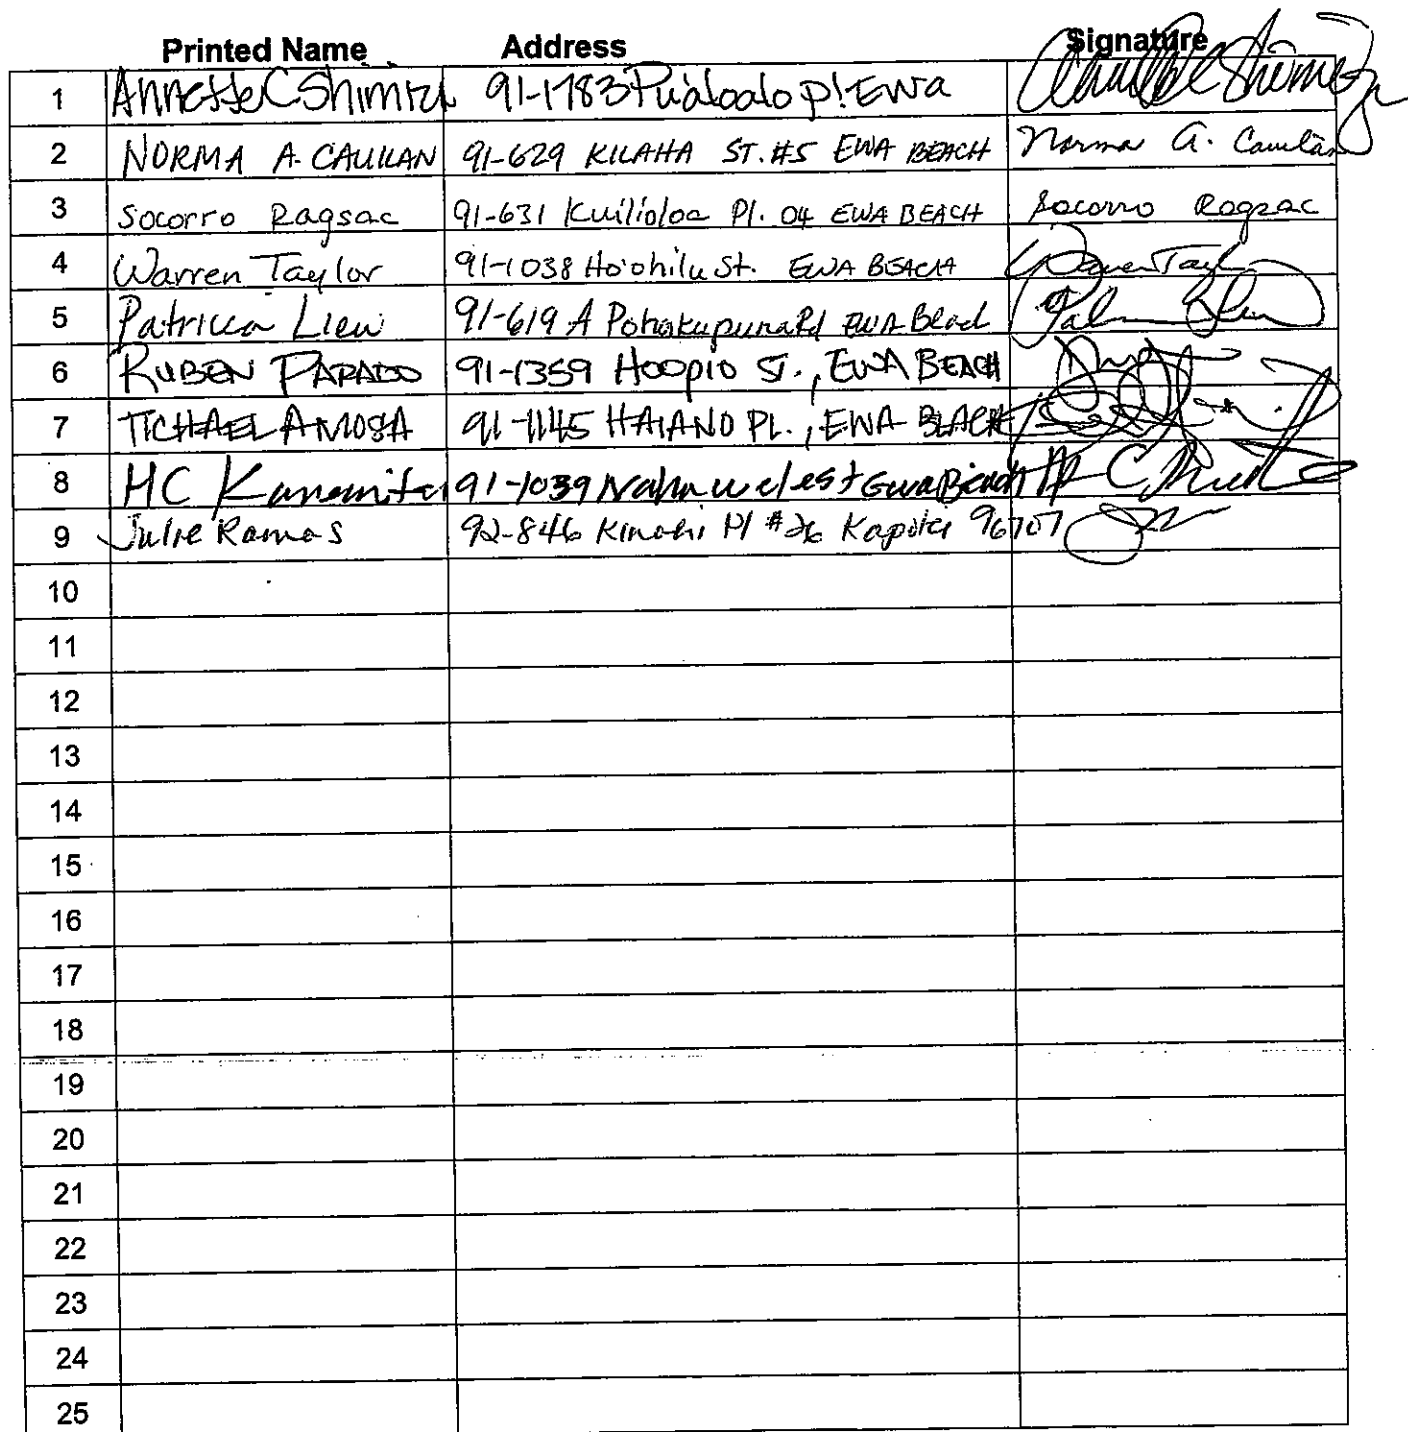 Printed Name Address Signature
1 Annette C Shimizu 91-1783 Pualoalo pl Ewa
2 NORMA A. CAULILAN 91-629 KILAHA ST. #5 EWA BEACH Norma A.
3 Socorro Ragsac 91-631 Kuilioloa Pl. 04 EWA BEACH Socorro Ragsac
4 Warren Taylor 91-1038 Ho'ohilu St. EWA BEACH Warren Tayl
5 Patricia Liew 91-619 A Pohakupuna Rd EWA Beach
6 RUBEN PARADO 91-1359 HOOPIO ST., EWA BEACH
7 AMOSA 91-1145 HAIANO PL., EWA BEACH
8 HC 91-1039 st Ewa Beach
9 Julie Ramos 92-846 Kinohi Pl #26 Kapolei 96707
10
11
12
13
14
15
16
17
18
19
20
21
22
23
24
25